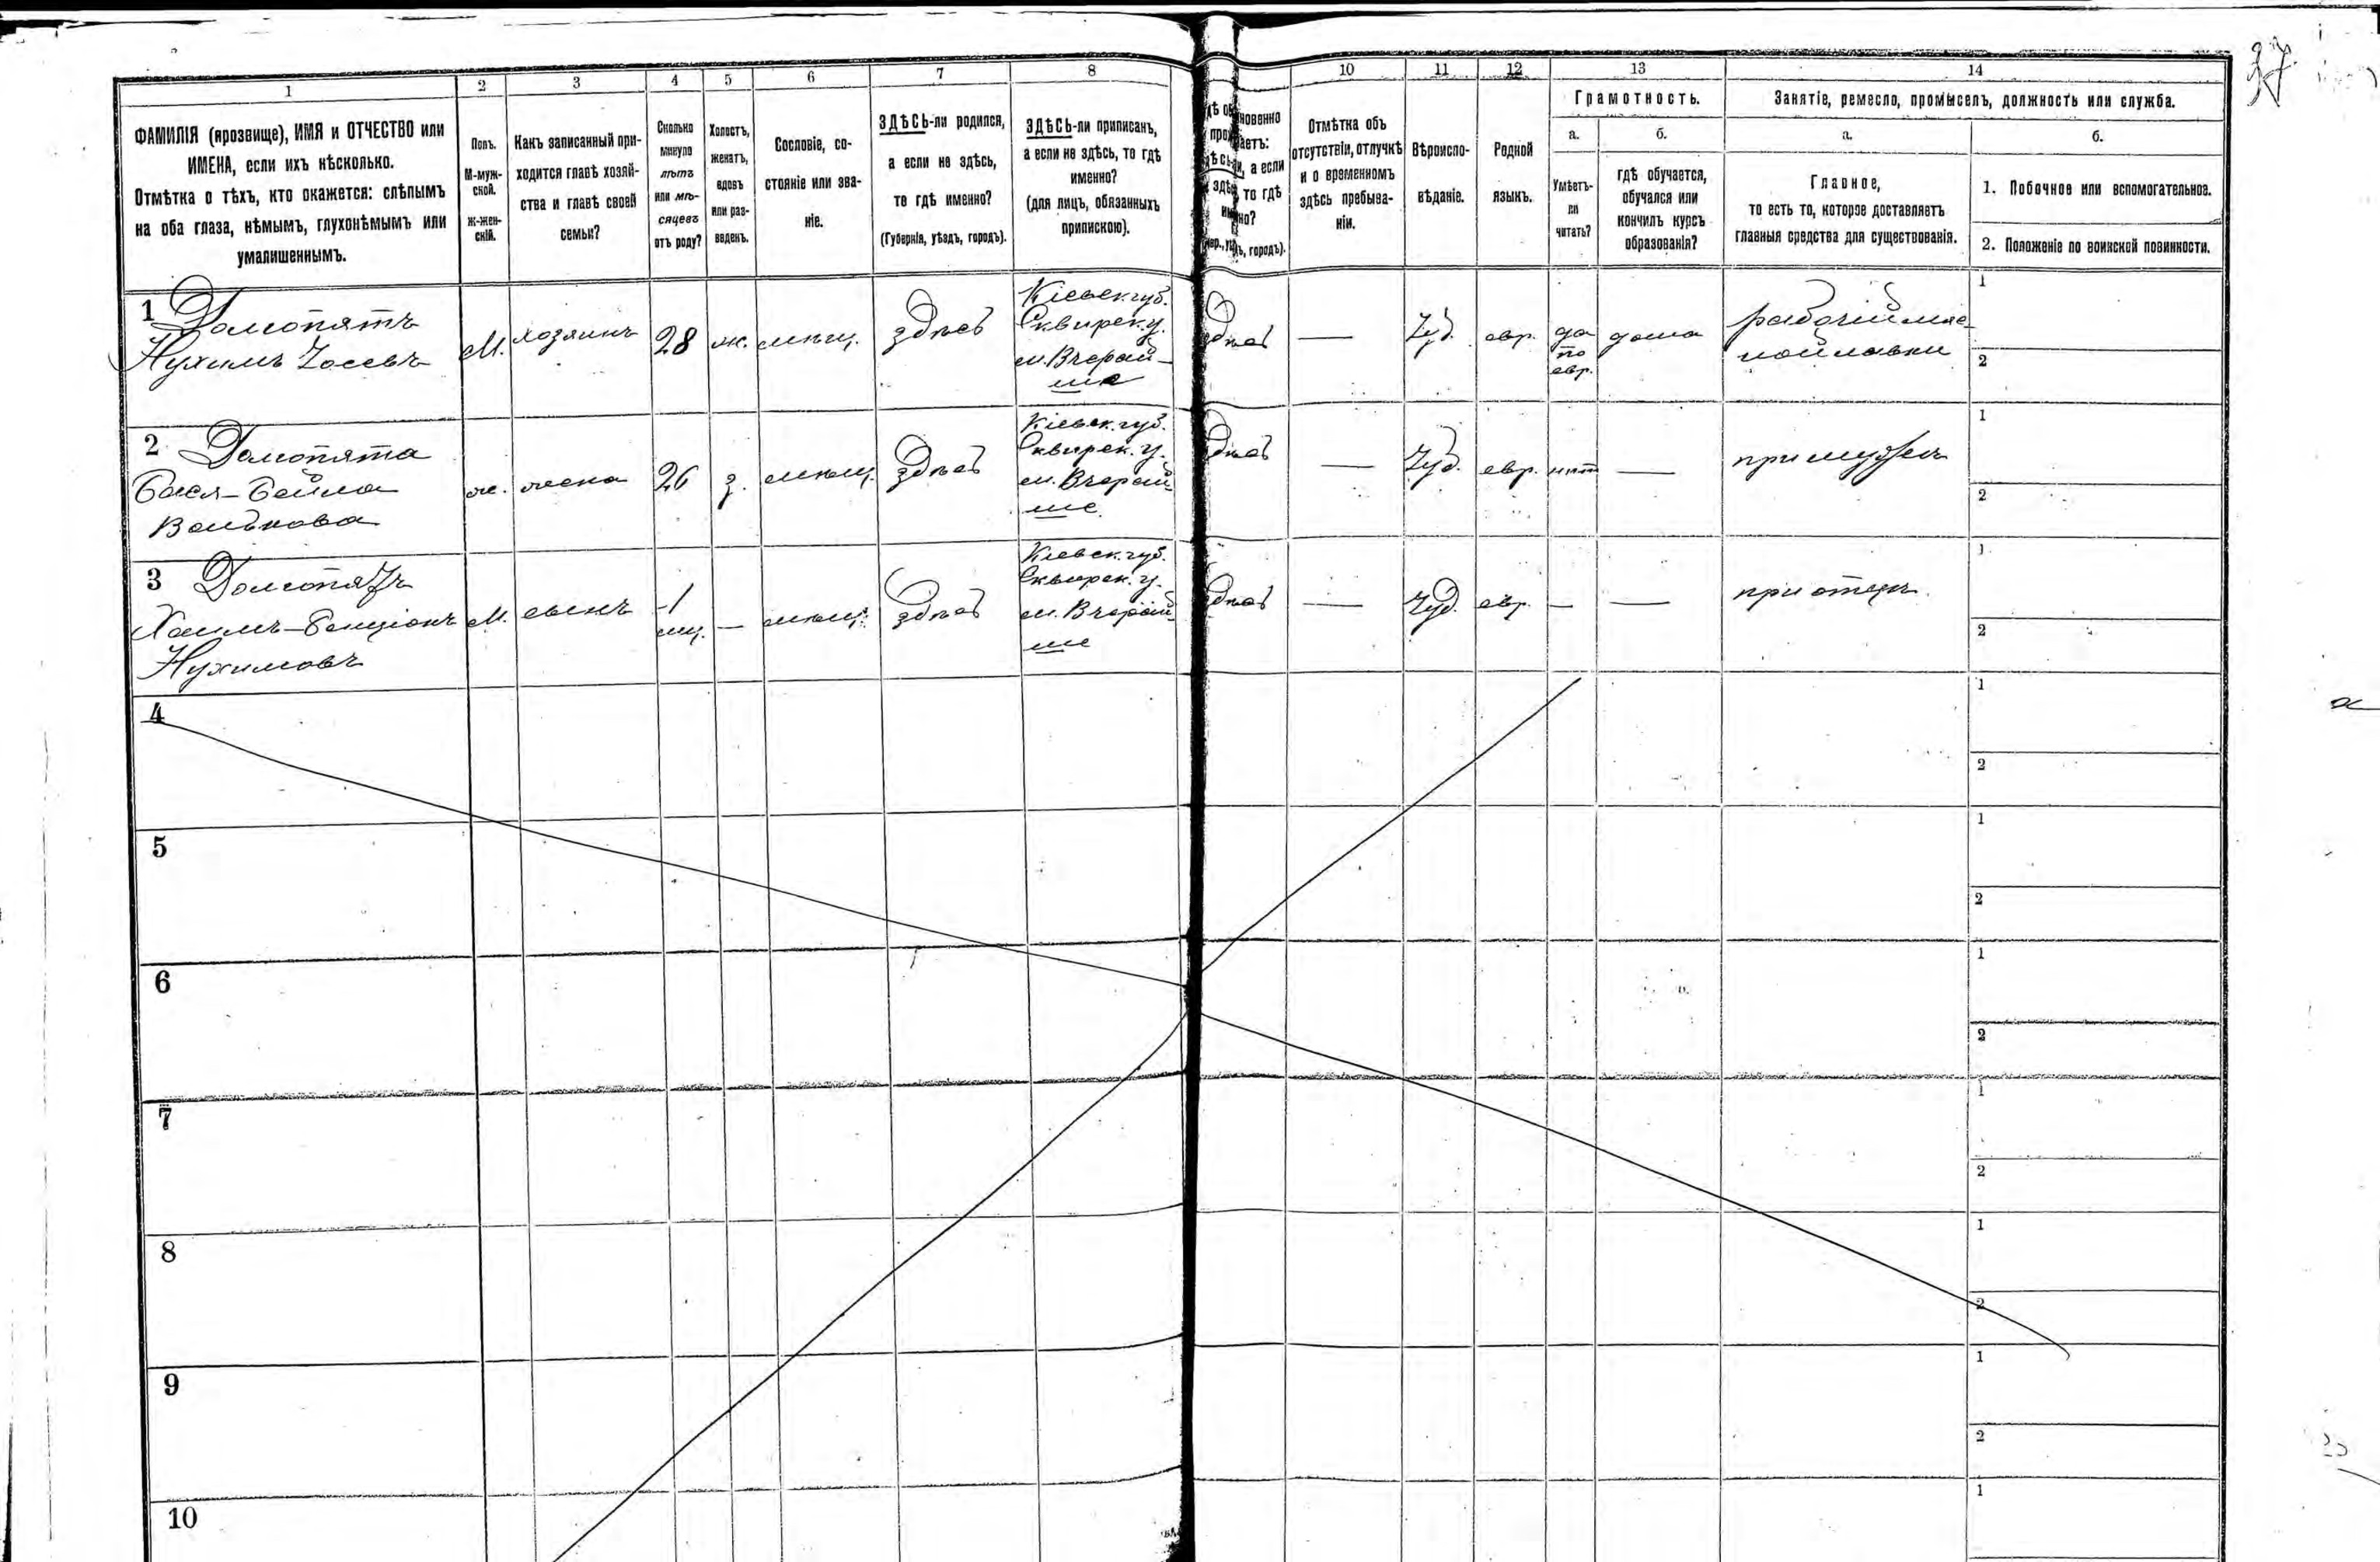 37
1
2
3
4
5
6
7
8
10
11
12
13
14
ФАМИЛІЯ (прозвище), ИМЯ и ОТЧЕСТВО или
ИМЕНА, если ихъ нѣсколько.
Отмѣтка о тѣхъ, кто окажется: слѣпымъ
на оба глаза, нѣмымъ, глухонѣмымъ или
умалишеннымъ.
Полъ.
М-муж-
ской.
Ж-жен-
скій.
Какъ записанный при-
ходится главѣ хозяй-
ства и главѣ своей
семьи?
Сколько
минуло
лѣтъ
или мѣ-
сяцевъ
отъ роду?
Холостъ,
женатъ,
вдовъ
или раз-
веденъ.
Сословіе, со-
стояніе или зва-
ніе.
ЗДѢСЬ-ли родился,
а если не здѣсь,
то гдѣ именно?
(Губернія, уѣздъ, городъ).
ЗДѢСЬ-ли приписанъ,
а если не здѣсь, то гдѣ
именно?
(для лицъ, обязанныхъ
припискою).
новенно
аетъ:
а если
то гдѣ
но?
городъ).
Отмѣтка объ
отсутствіи, отлучкѣ
и о временномъ
здѣсь пребыва-
ніи.
Вѣроиспо-
вѣданіе.
Родной
языкъ.
Грамотность.
а.
б.
Умѣетъ-
ли
читать?
гдѣ обучается,
обучался или
кончилъ курсъ
образованія?
Занятіе, ремесло, промыселъ, должность или служба.
а.
б.
Главное,
то есть то, которое доставляетъ
главныя средства для существованія.
1. Побочное или вспомогательное.
2. Положеніе по воинской повинности.
1 Домопятъ
Нухимъ Іосевъ
М.
хозяинъ
28
ж.
мѣщ.
здѣсь
Кіевск. губ.
Сквирск. у.
м. Вчерай-
ше
здѣсь
—
Іуд.
евр.
да
по
евр.
дома
рабочій мяс-
ной лавки
1
2
2 Домопята
Бася-Бейла
Волькова
ж.
жена
26
з.
мѣщ.
здѣсь
Кіевск. губ.
Сквирск. у.
м. Вчерай-
ше
здѣсь
—
Іуд.
евр.
нѣт
—
при мужѣ
1
2
3 Домопятъ
Хаимъ-Бенціонъ
Нухимовъ
М.
сынъ
1
мц.
—
мѣщ.
здѣсь
Кіевск. губ.
Сквирск. у.
м. Вчерай-
ше
здѣсь
—
Іуд.
евр.
—
—
при отцѣ
1
2
4
1
2
5
1
2
6
1
2
7
1
2
8
1
2
9
1
2
10
1